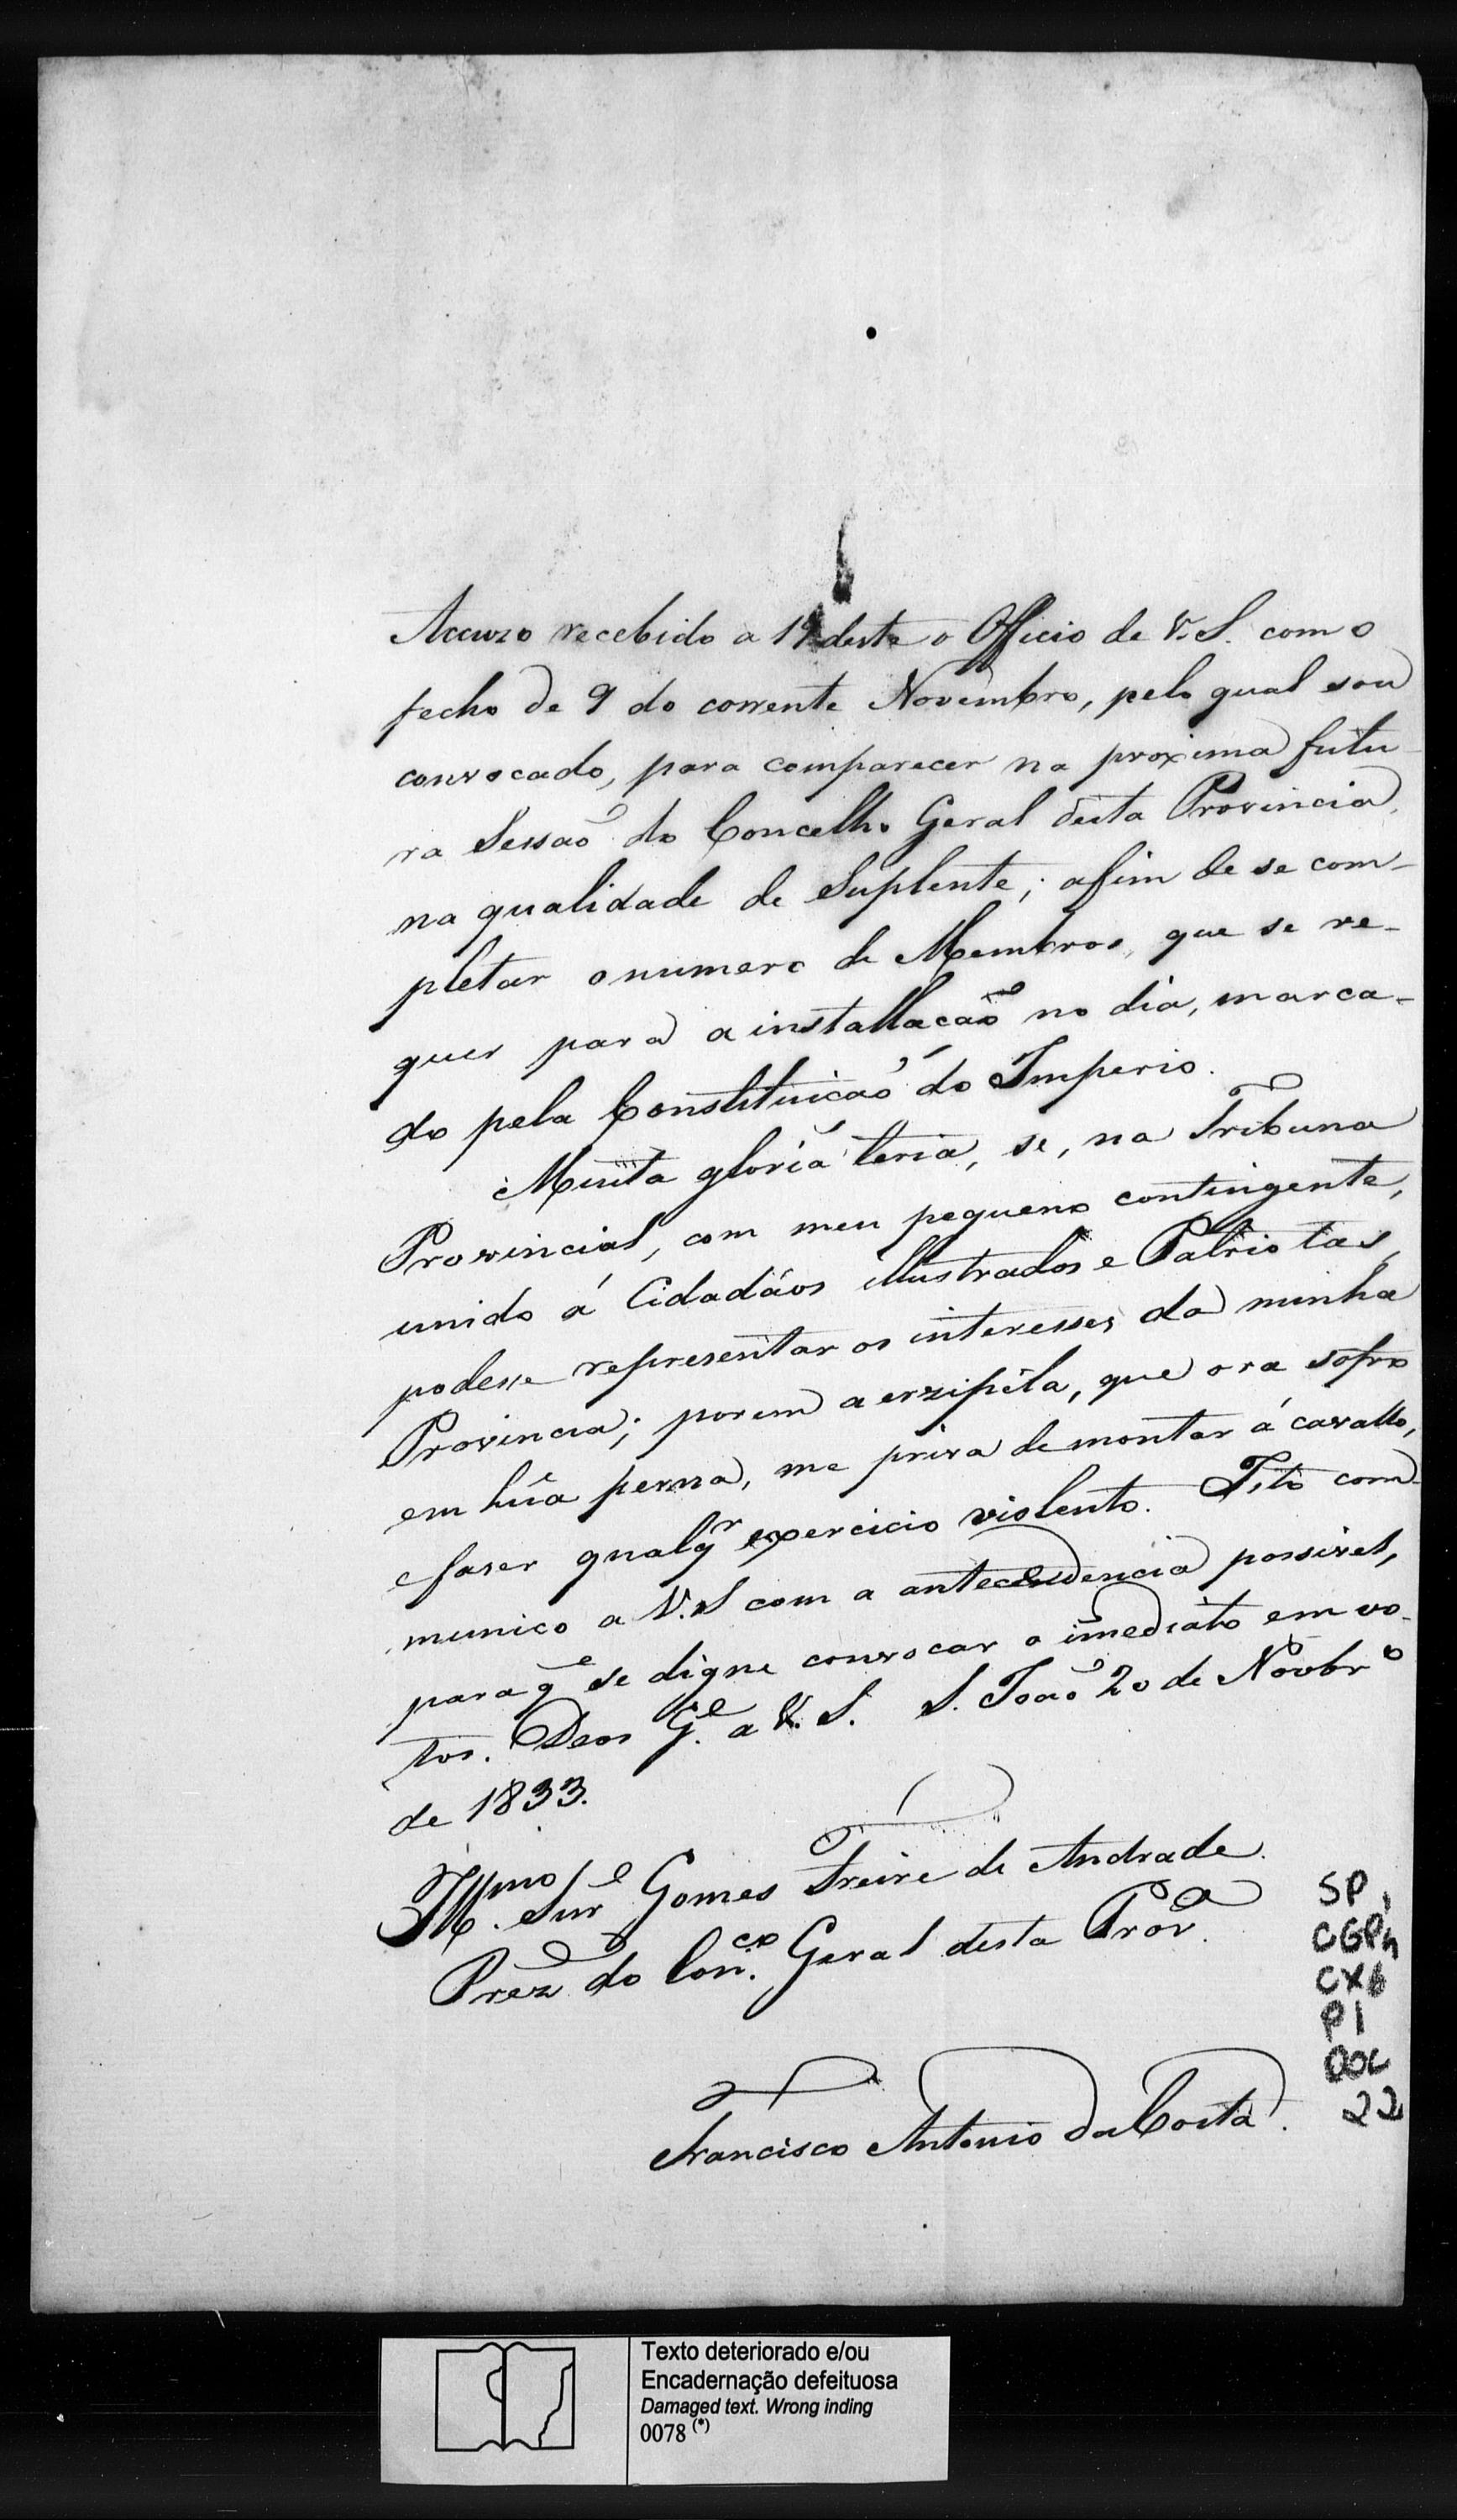 Accuzo recebido a 19 deste o Officio de V. S. com o
fecho de 9 do corrente Novembro, pelo qual sou
convocado, para comparecer na proxima futu-
ra Sessaõ do Concelho Geral desta Provincia,
na qualidade de Suplente; afim de se com-
pletar o numero de Membros, que se re-
quer para a installacaõ no dia, marca-
do pela Constituicaõ do Imperio.
Muita gloria teria, se, na Tribuna
Provincial, com meu pequeno contingente,
unido á Cidadãos illustrados e Patriotas,
podesse representar os interesses da minha
Provincia; porem a erzipéla, que ora sofro
em hũa perna, me priva de montar á cavallo,
e faser qualqr exercicio violento. Isto com-
munico a V. S com a antecedencia possivel,
para q̃ se digne convocar o imediato em vo-
tos. Deos Ge. a V. S. S. Joaõ 20 de Novbro
de 1833.
Illmo. Snr Gomes Freire de Andrade.
Prez. do Conco. Geral desta Prova.
Francisco Antonio da Costa.
SP,
CGP1
CX6
P1
DOC
22
Texto deteriorado e/ou
Encadernação defeituosa
Damaged text. Wrong inding
0078 (*)